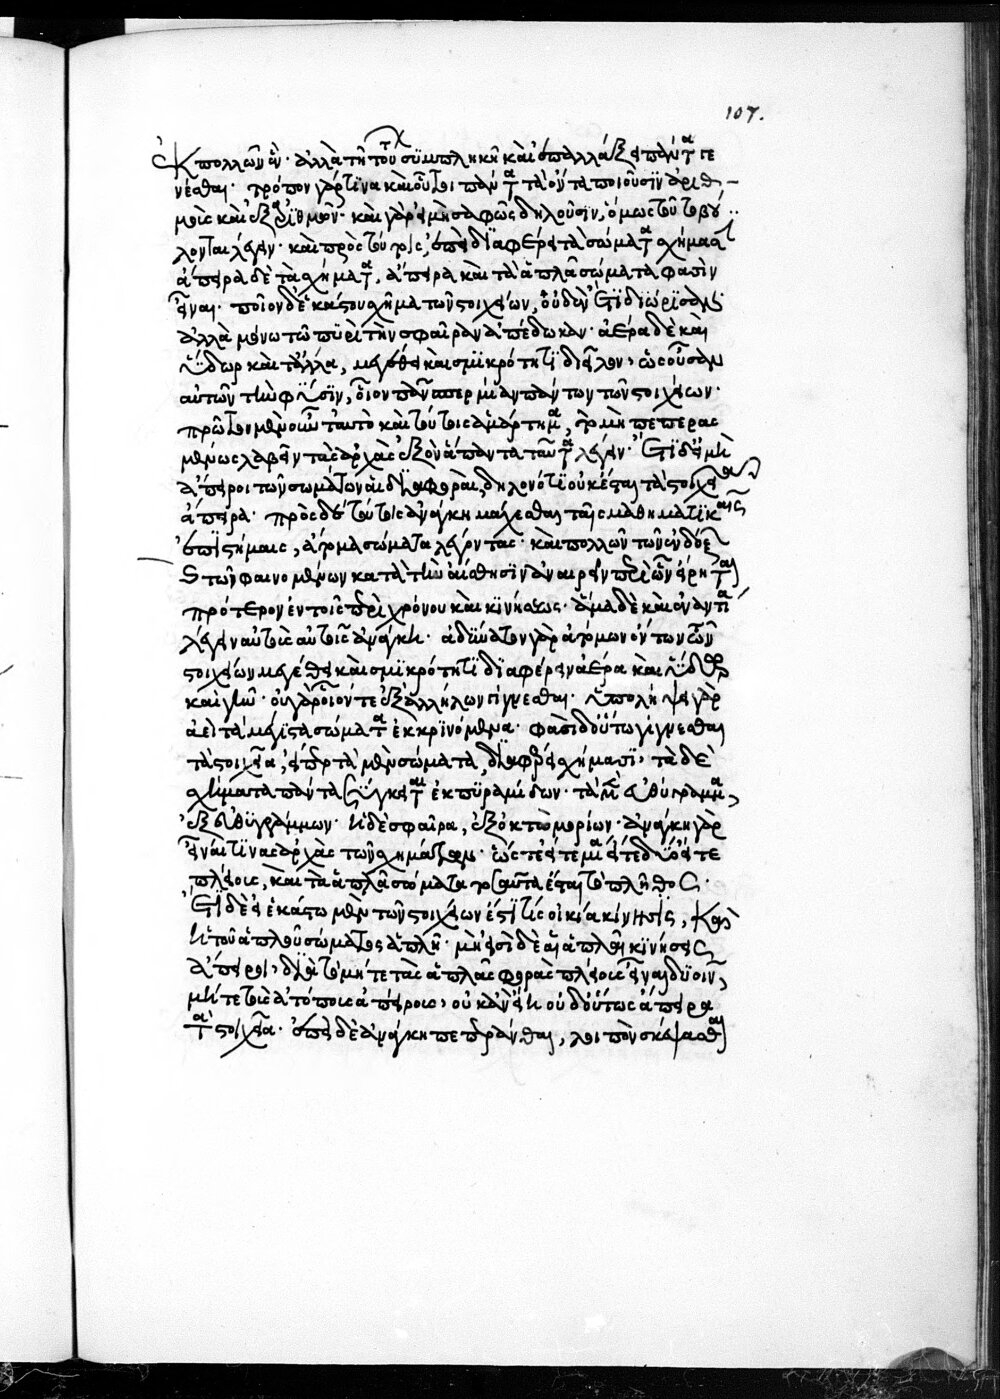 107.
ἐκ πολλῶν ἓν· ἀλλὰ τῇ τούτων συμπλοκῆ καὶ ἐπαλλάξει πάντα γε
νέσθαι· τρόπον γάρ τινα καὶ οὗτοι πάντα τὰ ὄντα ποιοῦσιν ἀριθ
μοὺς καὶ ἐξ ἀριθμῶν· καὶ γὰρ εἰ μὴ σαφῶς δηλοῦσιν, ὅμως τοῦτο βού
λονται λέγειν· καὶ πρὸς τούτοις, ἐπεὶ διαφέρει τὰ σώματα σχήμασιν
ἄπειρα δὲ τὰ σχήματα, ἄπειρα καὶ τὰ ἁπλᾶ σώματα φασὶν
εἶναι· ποῖον δὲ ἑκάστου σχῆμα τῶν στοιχείων, οὐδὲν ἔτι διώρισαν
ἀλλὰ μόνω τῶ πυρὶ τὴν σφαῖραν ἀπέδωκαν· ἀέρα δὲ καὶ
ὕδωρ καὶ τἄλλα, μεγέθει καὶ σμικρότητι διεῖλον, ὡς οὖσαν
αὐτῶν τὴν φύσιν, οἷον πανσπερμίαν πάντων τῶν στοιχείων·
πρῶτον μὲν οὖν ταὐτὸ καὶ τούτοις ἁμάρτημα, τὸ μὴ πεπερας
μένως λαβεῖν τὰς ἀρχὰς ἐξὸν ἅπαντα ταῦτα λέγειν· ἔτι δὲ εἰ μὴ
ἄπειροι τῶν σωμάτων αἱ διαφοραὶ, δῆλον ὅτι οὐκ ἔσται τὰ στοιχεῖα
ἄπειρα· πρὸς δὲ τούτοις ἀνάγκη μάχεσθαι ταῖς μαθηματικαῖς
ἐπιστήμαις, ἄτομα σώματα λέγοντας· καὶ πολλῶν τῶν ἐνδόξων
τῶν φαινομένων κατὰ τὴν αἴσθησιν ἀναιρεῖν περὶ ὧν εἴρηται
πρότερον ἐν τοῖς περὶ χρόνου καὶ κινήσεως· ἅμα δὲ καὶ ἐναντία
λέγειν αὐτοὺς αὑτοῖς ἀνάγκη· ἀδύνατον γὰρ ἀτόμων ὄντων τῶν
στοιχείων μεγέθει καὶ σμικρότητι διαφέρειν ἀέρα καὶ ὕδωρ
καὶ γῆν· οὐ γὰρ οἷόν τε ἐξ ἀλλήλων γίγνεσθαι· ὑπολείψει γὰρ
ἀεὶ τὰ μέγιστα σώματα ἐκκρινόμενα· φασὶ δ' οὕτω γίγνεσθαι
τὰ στοιχεῖα, εἴπερ τὰ μὲν σώματα, διαφέρει σχήμασι, τὰ δὲ
σχήματα πάντα σύγκειται ἐκ πυραμίδων· τὰ μὲν εὐθύγραμμα,
ἐξ εὐθυγράμμων· ἡ δὲ σφαῖρα, ἐξ ὀκτὼ μορίων· ἀνάγκη γὰρ
εἶναί τινας ἀρχὰς τῶν σχημάτων· ὥστε εἴτε μία εἴτε δύο εἴτε
πλείους, καὶ τὰ ἁπλᾶ σώματα τοσαῦτα ἔσται τὸ πλῆθος·
Ἔτι δὲ εἰ ἑκάστω μὲν τῶν στοιχείων ἐστί τις οἰκεία κίνησις, καὶ
ἡ τοῦ ἁπλοῦ σώματος ἁπλῆ· μή εἰσι δὲ αἱ ἁπλαῖ κινήσεις
ἄπειροι, διὰ τὸ μήτε τὰς ἁπλᾶς φορὰς πλείους εἶναι δυοῖν,
μήτε τοὺς τόπους ἀπείρους, οὐκ ἂν εἴη οὐδ' οὕτως ἄπειρα
τὰ στοιχεῖα· ἐπεὶ δὲ ἀνάγκη πεπεράνθαι, λοιπὸν σκέψασθαι